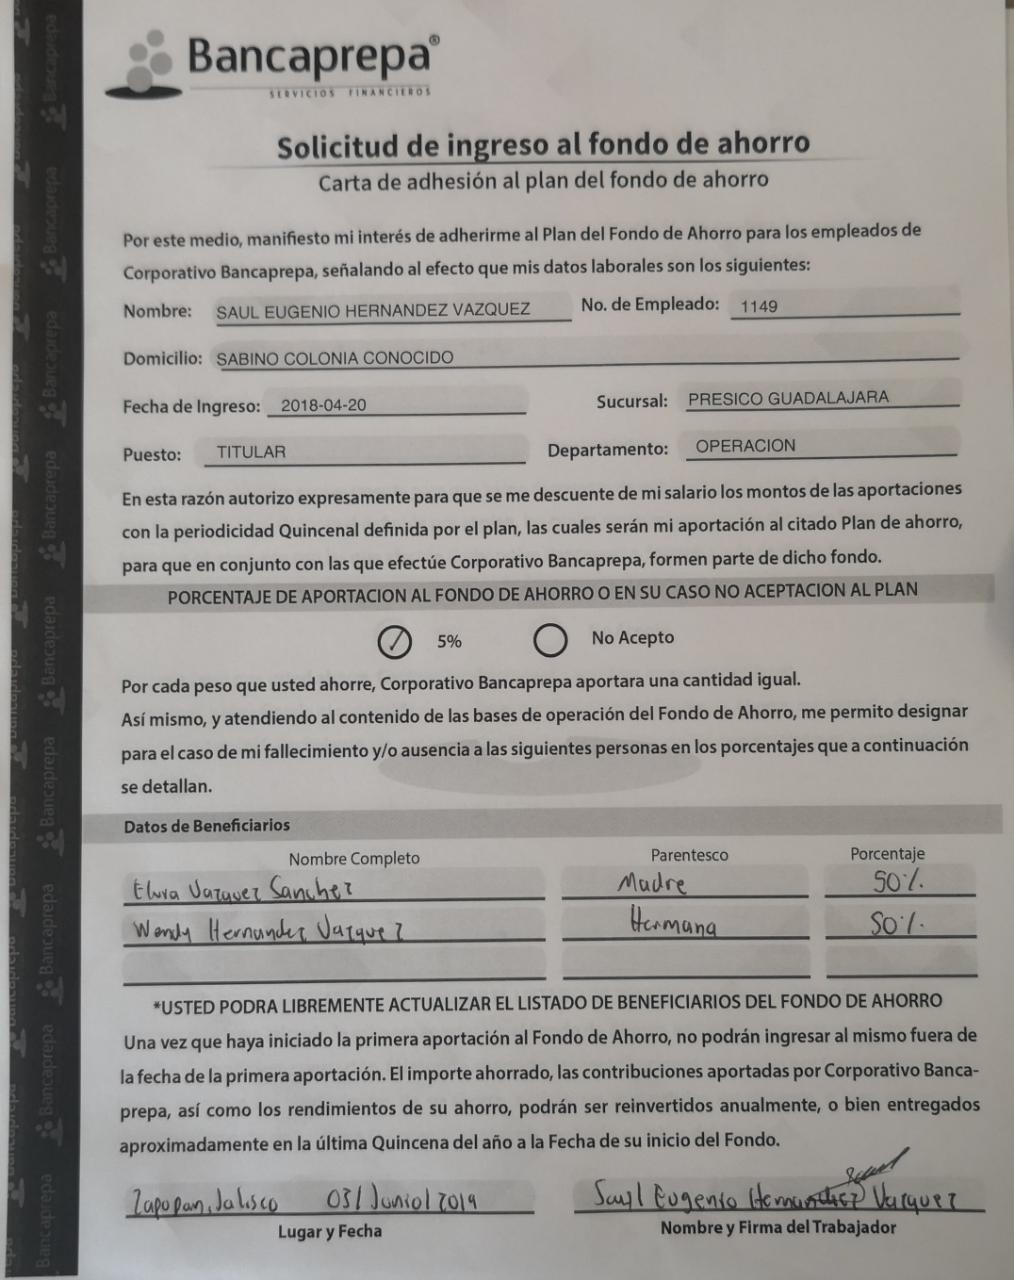 Bancaprepa®
SERVICIOS FINANCIEROS
Solicitud de ingreso al fondo de ahorro
Carta de adhesión al plan del fondo de ahorro
Por este medio, manifiesto mi interés de adherirme al Plan del Fondo de Ahorro para los empleados de
Corporativo Bancaprepa, señalando al efecto que mis datos laborales son los siguientes:
Nombre: SAUL EUGENIO HERNANDEZ VAZQUEZ No. de Empleado: 1149
Domicilio: SABINO COLONIA CONOCIDO
Fecha de Ingreso: 2018-04-20 Sucursal: PRESICO GUADALAJARA
Puesto: TITULAR Departamento: OPERACION
En esta razón autorizo expresamente para que se me descuente de mi salario los montos de las aportaciones
con la periodicidad Quincenal definida por el plan, las cuales serán mi aportación al citado Plan de ahorro,
para que en conjunto con las que efectúe Corporativo Bancaprepa, formen parte de dicho fondo.
PORCENTAJE DE APORTACION AL FONDO DE AHORRO O EN SU CASO NO ACEPTACION AL PLAN
5% No Acepto
Por cada peso que usted ahorre, Corporativo Bancaprepa aportara una cantidad igual.
Así mismo, y atendiendo al contenido de las bases de operación del Fondo de Ahorro, me permito designar
para el caso de mi fallecimiento y/o ausencia a las siguientes personas en los porcentajes que a continuación
se detallan.
Datos de Beneficiarios
Nombre Completo Parentesco Porcentaje
Vazquez Sanchez Madre 50%
Wendy Hernandez Vazquez Hermana 50%
*USTED PODRA LIBREMENTE ACTUALIZAR EL LISTADO DE BENEFICIARIOS DEL FONDO DE AHORRO
Una vez que haya iniciado la primera aportación al Fondo de Ahorro, no podrán ingresar al mismo fuera de
la fecha de la primera aportación. El importe ahorrado, las contribuciones aportadas por Corporativo Banca-
prepa, así como los rendimientos de su ahorro, podrán ser reinvertidos anualmente, o bien entregados
aproximadamente en la última Quincena del año a la Fecha de su inicio del Fondo.
Zapopan, Jalisco 03/Junio/2019 Saul Eugenio Hernandez Vazquez
Lugar y Fecha Nombre y Firma del Trabajador